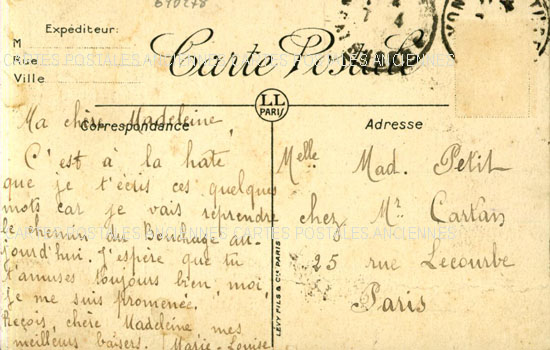 640278
Expéditeur:
M
Rue
Ville
Carte Postale
LL
PARIS
Correspondance
Adresse
CARTES POSTALES ANCIENNES CARTES POSTALES ANCIENNES
Ma chère Madeleine,
C'est à la hate
que je t'écris ces quelques
mots car je vais reprendre
le chemin du Bouchage au-
jourd'hui. J'espère que tu
t'amuses toujours bien, moi
je me suis promenée.
Reçois, chère Madeleine mes
meilleurs baisers. Marie-Louise
LÉVY FILS & Cie PARIS
Melle Mad. Petit
chez Mr Cartan
25 rue Lecourbe
Paris
CARTES POSTALES ANCIENNES CARTES POSTALES ANCIENNES